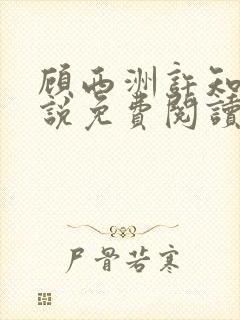 顧西洲許知
說免費閱讀
尸骨若寒